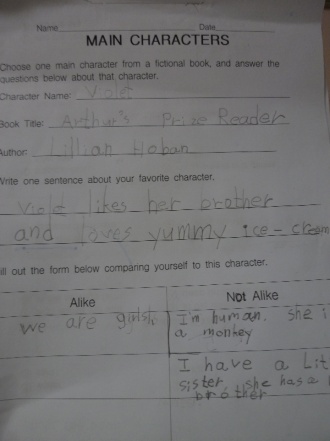 Name Date
MAIN CHARACTERS
Choose one main character from a fictional book, and answer the
questions below about that character.
Character Name: Violet
Book Title: Arthur's Prize Reader
Author: Lillian Hoban
Write one sentence about your favorite character.
Violet likes her brother
and loves yummy ice-cream
ill out the form below comparing yourself to this character.
Alike Not Alike
we are girls.
I'm human. she i
a monkey
I have a Lit
sister she has a
brother